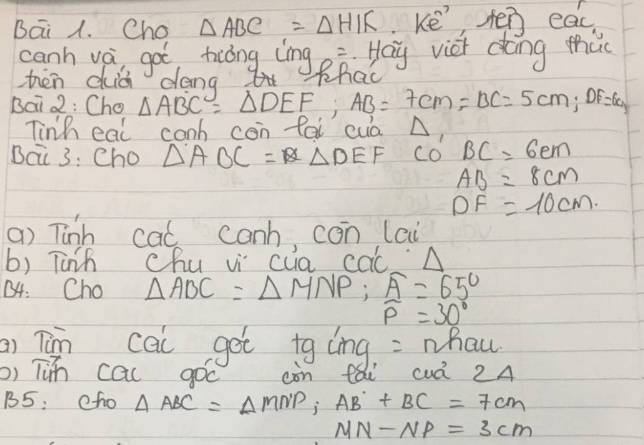 Bài 1. Cho △ABC = △HIK. Kể tên các
cạnh và góc tương ứng =. Hãy viết đẳng thức
trên dưới dạng khác
Bài 2: Cho △ABC = △DEF; AB = 7cm; BC = 5cm; DF=6cm
Tính các cạnh còn lại của △.
Bài 3: Cho △ABC = △DEF có BC = 6cm
AB = 8cm
DF = 10cm.
a) Tính các cạnh còn lại
b) Tính chu vi của các △
B4: Cho △ABC = △MNP; Â = 65°
P̂ = 30°
a) Tìm các góc tg ứng = nhau.
b) Tính các góc còn lại của 2△
B5: Cho △ABC = △MNP; AB + BC = 7cm
MN - NP = 3cm